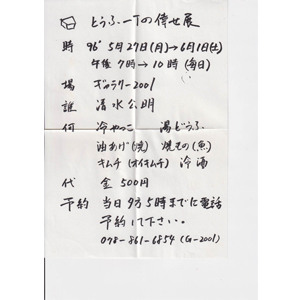 とうふ一丁の倖せ展
時 96° 5月27日(月)→6月1日(土)
午后 7時→10時 (毎日)
場 ギャラリー2001
誰 清水公明
何 冷やっこ 湯どうふ
油あげ(焼) 焼もの(魚)
キムチ(オイキムチ) 冷酒
代 金500円
予約 当日夕方5時までに電話
予約して下さい。
078-861-6854 (G-2001)